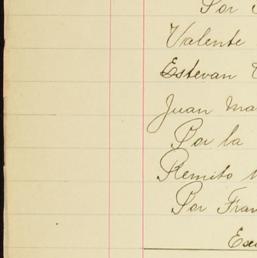 Por
Valente
Estevan
Juan Ma
Por la
Remito
Por Fran